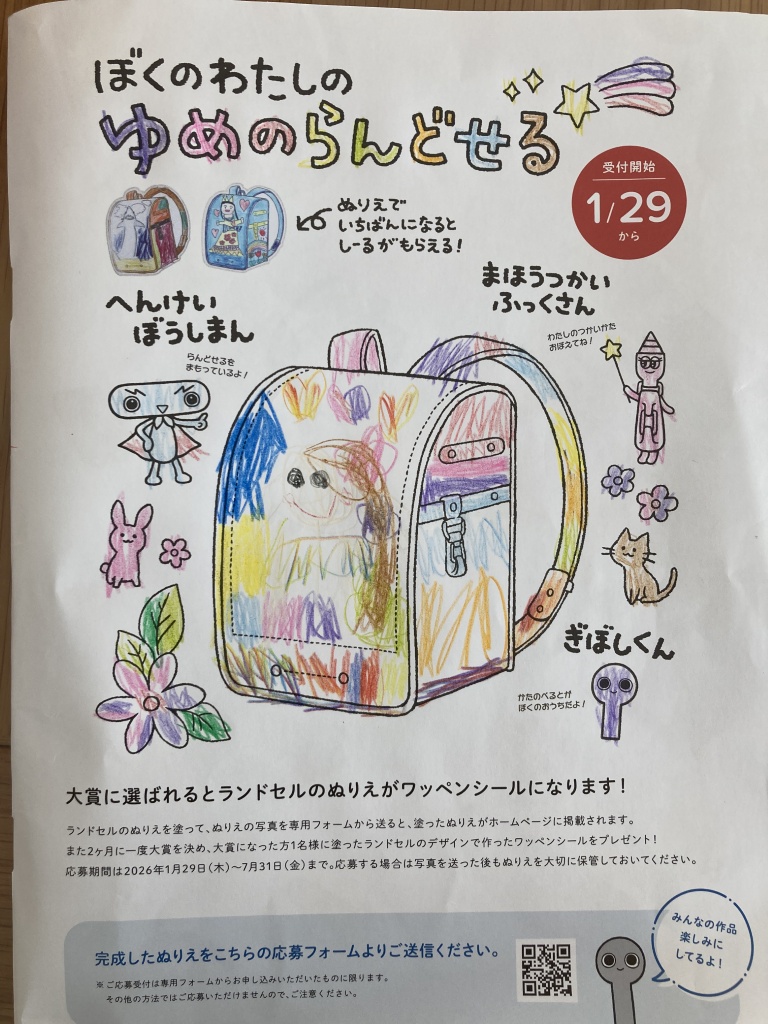 ぼくのわたしの
ゆめのらんどせる
受付開始
1/29
から
ぬりえで
いちばんになると
しーるがもらえる!
へんけい
ぼうしまん
らんどせるを
まもっているよ!
まほうつかい
ふっくさん
わたしのつかいかた
おぼえてね!
ぎぼしくん
かたのべるとが
ぼくのおうちだよ!
大賞に選ばれるとランドセルのぬりえがワッペンシールになります!
ランドセルのぬりえを塗って、ぬりえの写真を専用フォームから送ると、塗ったぬりえがホームページに掲載されます。
また2ヶ月に一度大賞を決め、大賞になった方1名様に塗ったランドセルのデザインで作ったワッペンシールをプレゼント!
応募期間は2026年1月29日(木)~7月31日(金)まで。応募する場合は写真を送った後もぬりえを大切に保管しておいてください。
完成したぬりえをこちらの応募フォームよりご送信ください。
※ご応募受付は専用フォームからお申し込みいただいたものに限ります。
その他の方法ではご応募いただけませんので、ご注意ください。
みんなの作品
楽しみに
してるよ!